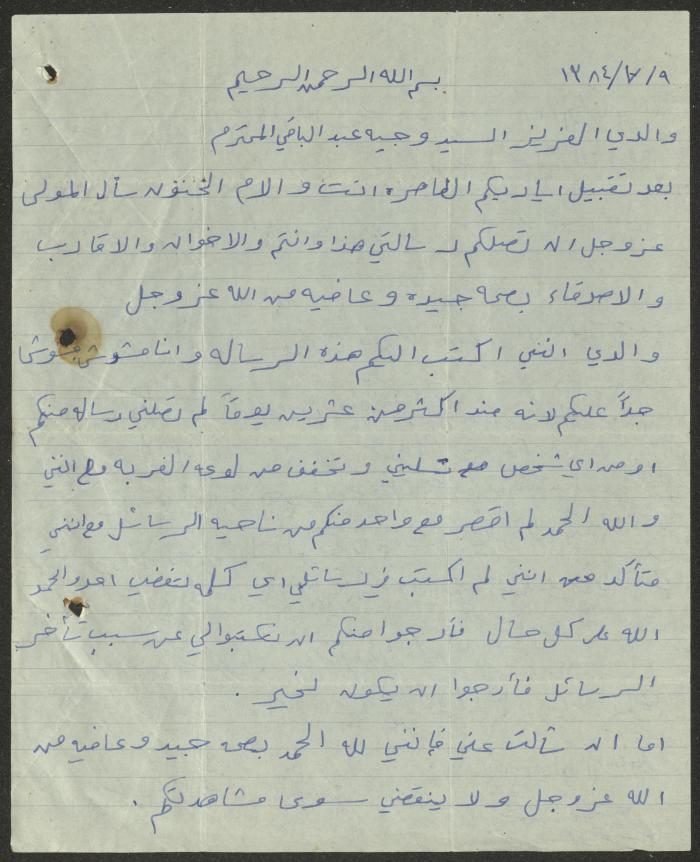 بسم الله الرحمن الرحيم ١٣٨٤/٧/٩
والدي العزيز السيد وجيه عبد الباقي المحترم
بعد تقبيل اياديكم الطاهره انت والام الحنون سأل المولى
عز وجل ان تصلكم رسالتي هذا وانتم والاخوان والاقارب
والاصدقاء بصحه جيده وعافيه من الله عز وجل
والدي انني اكتب اليكم هذه الرساله وانا مشوش مشوش
جداً عليكم لانه منذ اكثر من عشرين يوماً لم تصلني رساله منكم
او من اي شخص تسليني وتخفف من لوعه الغربه مع انني
والله الحمد لم اقصر مع واحد منكم من ناحيه الرسائل مع انني
متأكد من انني لم اكتب في رسائلي اي كلمه تغضب احد والحمد
الله على كل حال فأرجوا منكم ان تكتبوا لي عن سبب تأخر
الرسائل فأرجوا ان يكون لخير .
اما ان سألت عني فإنني لله الحمد بصحه جيد وعافيه من
الله عز وجل ولا ينقضني سوى مشاهدتكم .